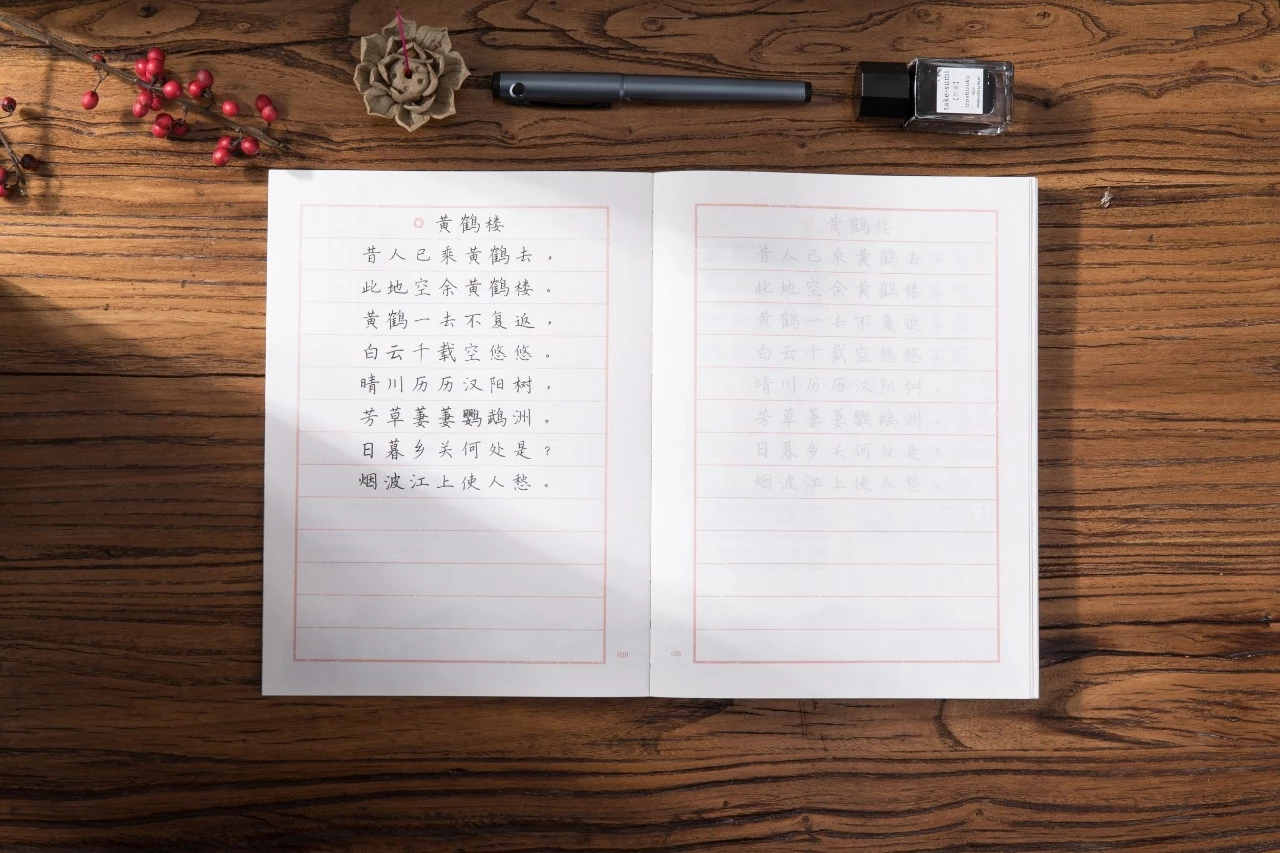 黄鹤楼
昔人已乘黄鹤去，
此地空余黄鹤楼。
黄鹤一去不复返，
白云千载空悠悠。
晴川历历汉阳树，
芳草萋萋鹦鹉洲。
日暮乡关何处是？
烟波江上使人愁。
020
黄鹤楼
昔人已乘黄鹤去，
此地空余黄鹤楼。
黄鹤一去不复返，
白云千载空悠悠。
晴川历历汉阳树，
芳草萋萋鹦鹉洲。
日暮乡关何处是？
烟波江上使人愁。
021
take-sumi
iroshizuku